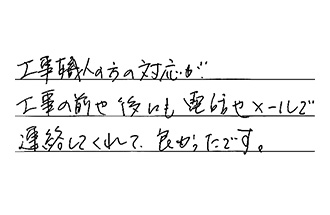 工事職人の方の対応が
工事の前や後にも電話やメールで
連絡してくれて、良かったです。